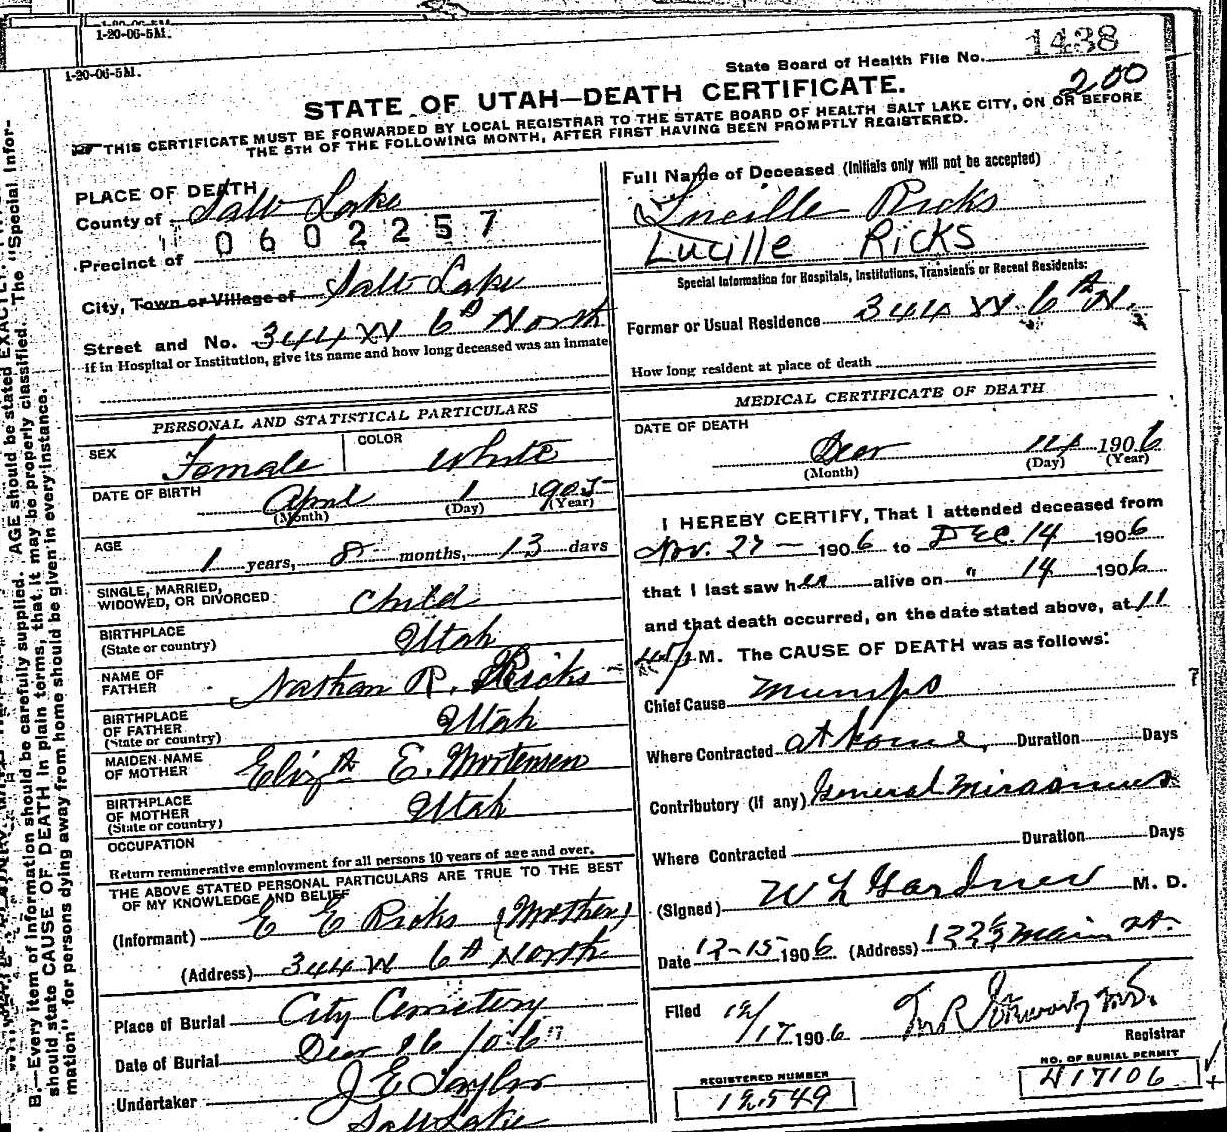 1-20-06-5M.
1-20-06-5M.
State Board of Health File No. 1438
200
STATE OF UTAH—DEATH CERTIFICATE.
THIS CERTIFICATE MUST BE FORWARDED BY LOCAL REGISTRAR TO THE STATE BOARD OF HEALTH SALT LAKE CITY, ON OR BEFORE
THE 5TH OF THE FOLLOWING MONTH, AFTER FIRST HAVING BEEN PROMPTLY REGISTERED.
PLACE OF DEATH
County of Salt Lake
0602257
Precinct of
City, Town or Village of Salt Lake
Street and No. 344 W 6th North
If in Hospital or Institution, give its name and how long deceased was an inmate
PERSONAL AND STATISTICAL PARTICULARS
SEX Female COLOR White
DATE OF BIRTH April 1 1905
(Month) (Day) (Year)
AGE 1 years, 8 months, 13 days
SINGLE, MARRIED,
WIDOWED, OR DIVORCED Child
BIRTHPLACE
(State or country) Utah
NAME OF
FATHER Nathan R. Ricks
BIRTHPLACE
OF FATHER
(State or country) Utah
MAIDEN NAME
OF MOTHER Elizth E. Mortensen
BIRTHPLACE
OF MOTHER
(State or country) Utah
OCCUPATION
Return remunerative employment for all persons 10 years of age and over.
THE ABOVE STATED PERSONAL PARTICULARS ARE TRUE TO THE BEST
OF MY KNOWLEDGE AND BELIEF
(Informant) E E Ricks (Mother)
(Address) 344 W 6th North
Place of Burial City Cemetery
Date of Burial Decr 16 1906
Undertaker J E Taylor
Salt Lake
Full Name of Deceased (Initials only will not be accepted)
Lucille Ricks
Lucille Ricks
Special Information for Hospitals, Institutions, Transients or Recent Residents:
Former or Usual Residence 344 W 6th N.
How long resident at place of death
MEDICAL CERTIFICATE OF DEATH
DATE OF DEATH
Decr 14 1906
(Month) (Day) (Year)
I HEREBY CERTIFY, That I attended deceased from
Nov. 27 — 1906 to DEC. 14 1906
that I last saw her alive on " 14 1906
and that death occurred, on the date stated above, at 11
45 P M. The CAUSE OF DEATH was as follows:
Chief Cause Mumps ?
Where Contracted at home, Duration Days
Contributory (if any) General Mirasmus
Duration Days
Where Contracted
(Signed) W L Gardner M. D.
Date 12-15 1906 (Address) Main St.
Filed 12/17 1906
Registrar
REGISTERED NUMBER
12549
NO. OF BURIAL PERMIT
H17106
B.—Every item of information should be carefully supplied. AGE should be stated EXACTLY.
should state CAUSE OF DEATH in plain terms, that it may be properly classified. The "Special Infor-
mation" for persons dying away from home should be given in every instance.